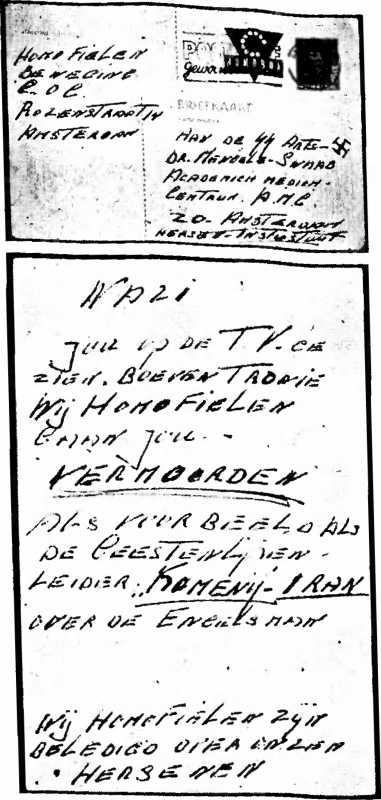 HOMOFIELEN
BEWEGING
C.O.C.
ROZENSTRAAT 14
AMSTERDAM
BRIEFKAART
AAN DE ARTS-
DR. MENGELE-SWAAB
ACADEMICH MEDICH-
CENTRUM. A.M.C
ZO- AMSTERDAM
HERSEN-INSTISTUUT
NAZI
JOU OP DE T.V. GE
ZIEN. BOEVEN TRONIE
WIJ HOMOFIELEN
GAAN JOU -
VERMOORDEN
ALS VOORBEELD ALS
DE GEESTENLIJKEN-
LEIDER, KOMENIJ-IRAN
OVER DE ENGELSMAN
WIJ HOMOFIELEN ZIJN
BELEDIGD OVER ONZEN
HERSENEN